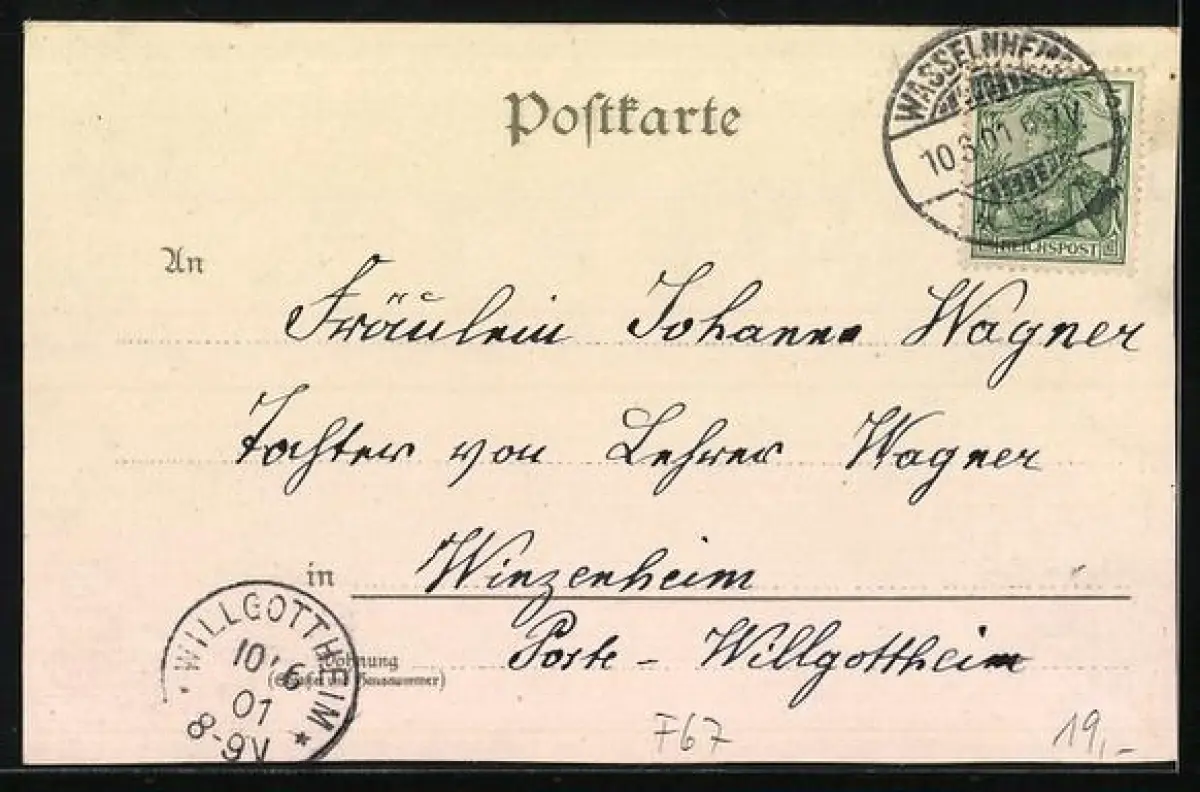 Postkarte
WASSELNHEIM
10.6.01
REICHSPOST
An
Fräulein Johanna Wagner
Tochter von Lehrer Wagner
in Winzenheim
Poste - Willgottheim
Wohnung
(Straße und Hausnummer)
WILLGOTTHEIM
10/6
01
8-9V
F67
19,-